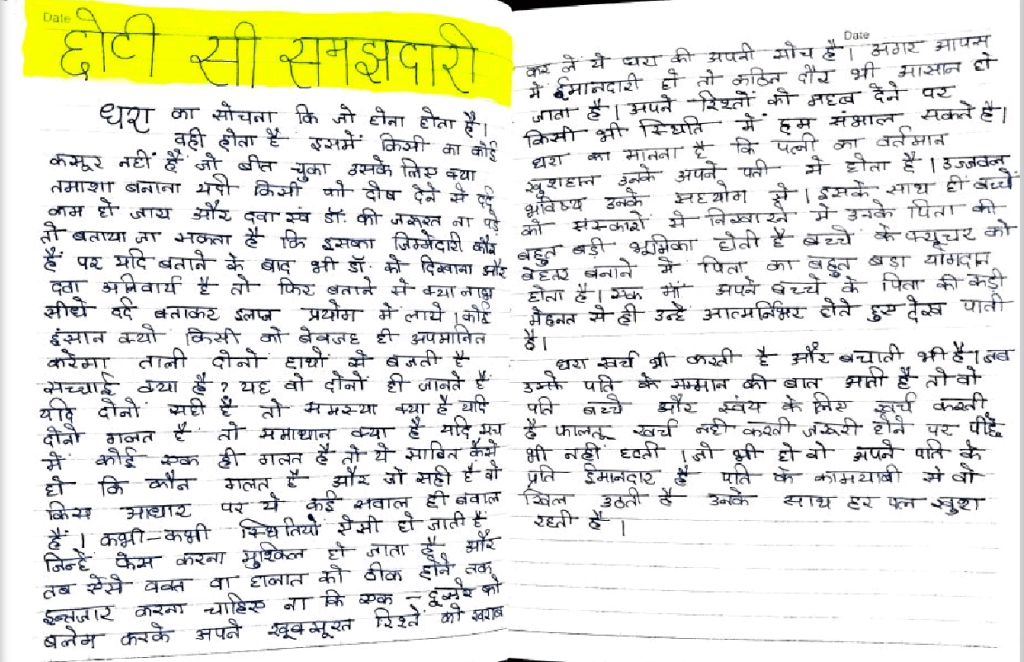 Date
छोटी सी समझदारी
धरा का सोचना कि जो होना होता है।
वही होता है इसमें किसी का कोई
कसूर नहीं है जो बीत चुका उसके लिए क्या
तमाशा बनाना यदी किसी को दोष देने से दर्द
कम हो जाय और दवा एवं डॉ. की जरूरत ना पड़े
तो बताया जा सकता है कि इसका जिम्मेदारी कौन
है पर यदि बताने के बाद भी डॉ. को दिखाना और
दवा अनिवार्य है तो फिर बताने से क्या लाभ
सीधे दर्द बताकर इलाज प्रयोग में लाये। कोई
इंसान क्यों किसी को बेवजह ही अपमानित
करेगा ताली दोनो हाथो से बजती है
सच्चाई क्या है? यह वो दोनों ही जानते है
यदि दोनों सही है तो समस्या क्या है यदि
दोनो गलत है तो समाधान क्या है यदि
में कोई एक ही गलत है तो ये साबित कैसे
हो कि कौन गलत है और जो सही है वो
किस आधार पर ये कई सवाल ही बवाल
है। कभी-कभी स्थितियाँ ऐसी हो जाती है
जिन्हें फेस करना मुश्किल हो जाता है और
तब ऐसे वक्त वा हालात को ठीक होने तक
इन्तजार करना चाहिए ना कि एक-दूसरे को
बलेम करके अपने खूबसूरत रिश्ते को खराब
Date
कर ले ये धरा की अपनी सोच है। अगर आपस
में ईमानदारी हो तो कठिन दौर भी आसान हो
जाता है। अपने रिश्तों को महत्व देने पर
किसी भी स्थिति में हम संभाल सकते है।
धरा का मानना है कि पत्नी का वर्तमान
खुशहाल उनके अपने पती से होता है। उज्जवल
भविष्य उनके सहयोग से। इसके साथ ही बच्चे
को संस्कारो से निखारने में उनके पिता की
बहुत बड़ी भूमिका होती है बच्चे के फ्यूचर को
बेहतर बनाने में पिता का बहुत बड़ा योगदान
होता है। एक माँ अपने बच्चे के पिता की कड़ी
मेहनत से ही उन्हे आत्मनिर्भर होते हुए देख पाती
है।
धरा खर्च भी करती है और बचाती भी है। जब
उनके पति के सम्मान की बात आती है तो वो
पति बच्चे और स्वंय के लिए खर्च करती
है फालतू खर्च नही करती जरूरी होने पर पीछे
भी नहीं हटती। जो भी हो वो अपने पति के
प्रति ईमानदार है पति के कामयाबी से वो
खिल उठती है उनके साथ हर पल खुश
रहती है।